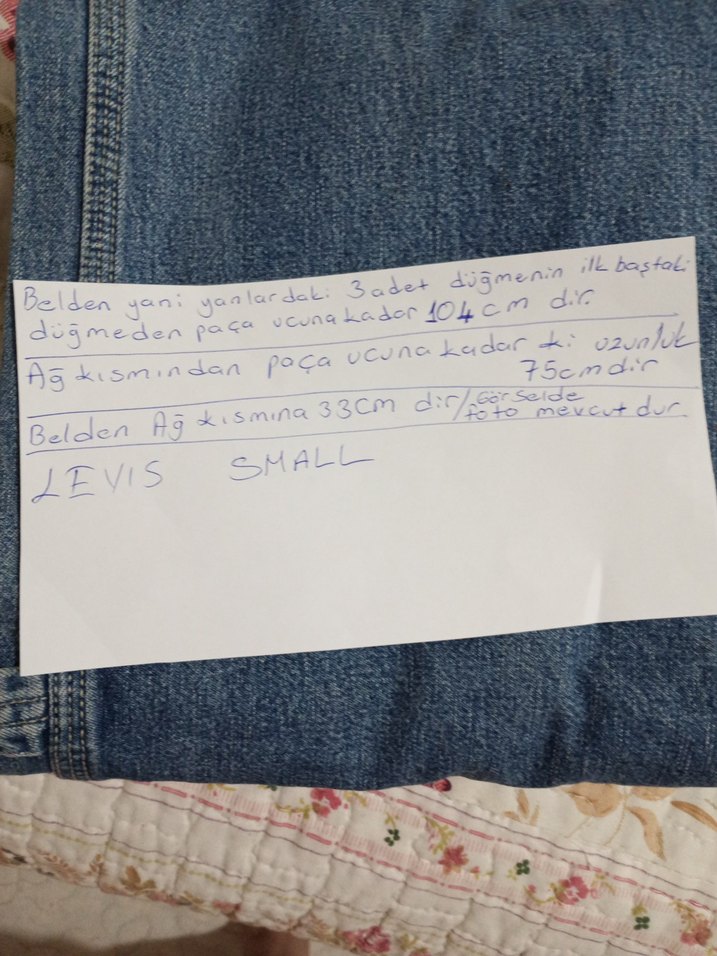 Belden yani yanlardaki 3 adet düğmenin ilk baştaki
düğmeden paça ucuna kadar 104 cm dir.
Ağ kısmından paça ucuna kadar ki uzunluk
75cm dir
Belden Ağ kısmına 33cm dir/Görselde
foto mevcut dur.
LEVIS SMALL